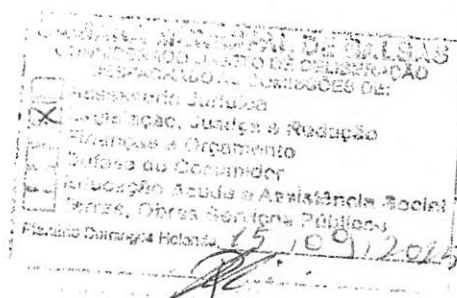 CÂMARA MUNICIPAL DE BALSAS
CONSIDERADO OBJETO DE DELIBERAÇÃO
DESPACHADO AS COMISSÕES DE:
Assessoria Jurídica
X Legislação, Justiça e Redação
Finanças e Orçamento
Defesa do Consumidor
Educação Saúde e Assistência Social
Terras, Obras Serviços Públicos
Plenário 15, 09, 2025